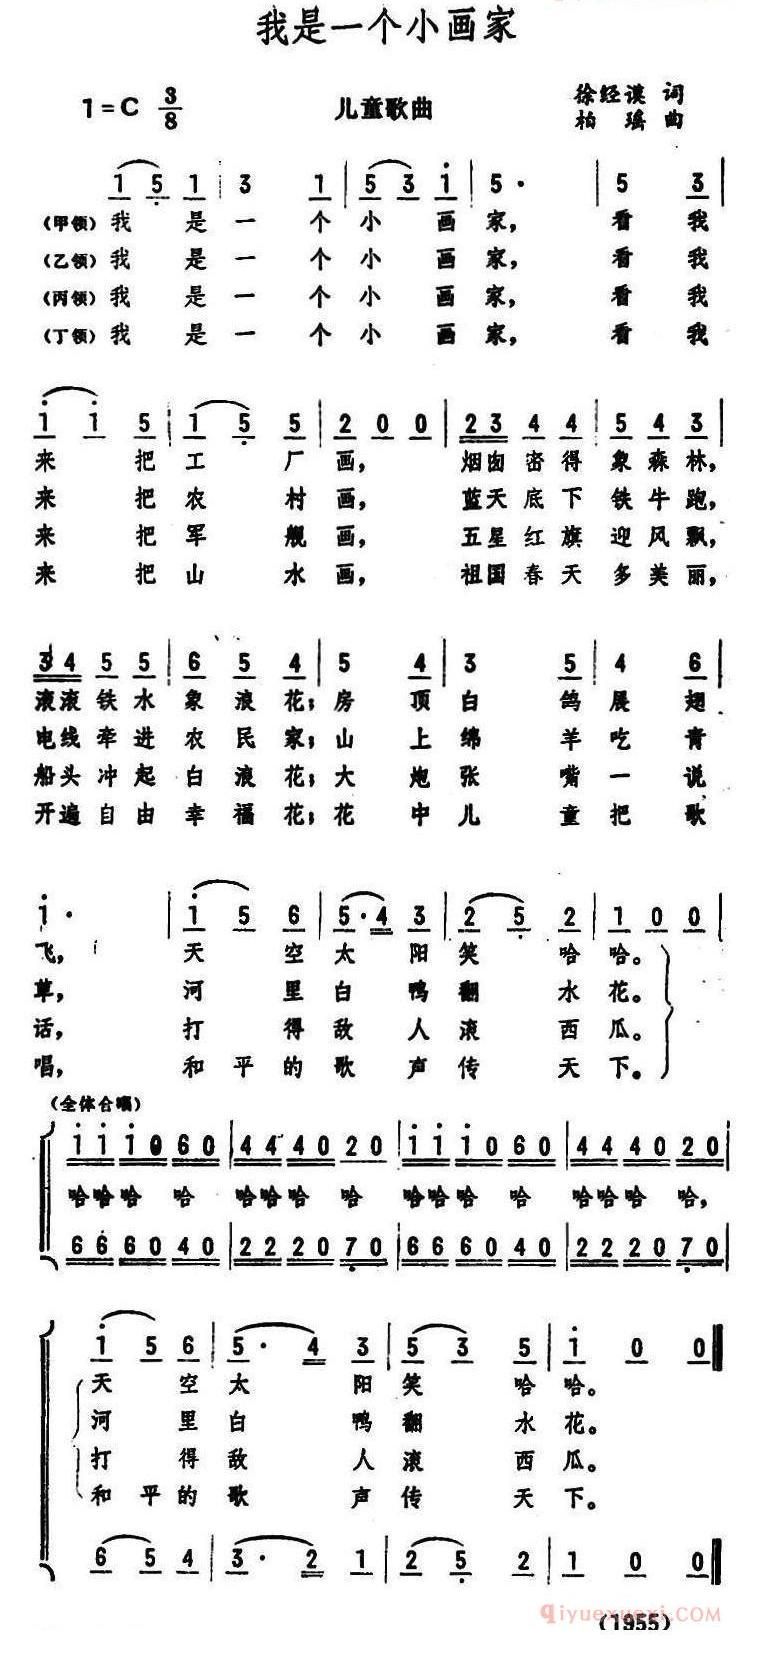 我是一个小画家
1=C 3/8 儿童歌曲 徐经谟 词
柏 瑶 曲
1 5 1 | 3 1 | 5 3 1 | 5· | 5 3 |
(甲领) 我 是 一 个 小 画 家, 看 我
(乙领) 我 是 一 个 小 画 家, 看 我
(丙领) 我 是 一 个 小 画 家, 看 我
(丁领) 我 是 一 个 小 画 家, 看 我
1 1 5 | 1 5 5 | 2 0 0 | 23 4 4 | 5 4 3 |
来 把 工 厂 画, 烟囱 密 得 象 森 林,
来 把 农 村 画, 蓝天 底 下 铁 牛 跑,
来 把 军 舰 画, 五星 红 旗 迎 风 飘,
来 把 山 水 画, 祖国 春 天 多 美 丽,
34 5 5 | 6 5 4 | 5 4 | 3 5 | 4 6 |
滚滚 铁 水 象 浪 花; 房 顶 白 鸽 展 翅
电线 牵 进 农 民 家; 山 上 绵 羊 吃 青
船头 冲 起 白 浪 花; 大 炮 张 嘴 一 说
开遍 自 由 幸 福 花; 花 中 儿 童 把 歌
1· | 1 5 6 | 5·4 3 | 2 5 2 | 1 0 0 |
飞, 天 空 太 阳 笑 哈 哈。
草, 河 里 白 鸭 翻 水 花。
话, 打 得 敌 人 滚 西 瓜。
唱, 和 平 的 歌 声 传 天 下。
(全体合唱)
1 1 1 0 6 0 | 4 4 4 0 2 0 | 1 1 1 0 6 0 | 4 4 4 0 2 0 |
哈哈哈 哈 哈哈哈 哈 哈哈哈 哈 哈哈哈 哈,
6 6 6 0 4 0 | 2 2 2 0 7 0 | 6 6 6 0 4 0 | 2 2 2 0 7 0 |
1 5 6 | 5· 4 3 | 5 3 5 | 1 0 0 ‖
天 空 太 阳 笑 哈 哈。
河 里 白 鸭 翻 水 花。
打 得 敌 人 滚 西 瓜。
和 平 的 歌 声 传 天 下。
6 5 4 | 3· 2 1 | 2 5 2 | 1 0 0 ‖
qiyuexuexi.com
(1955)